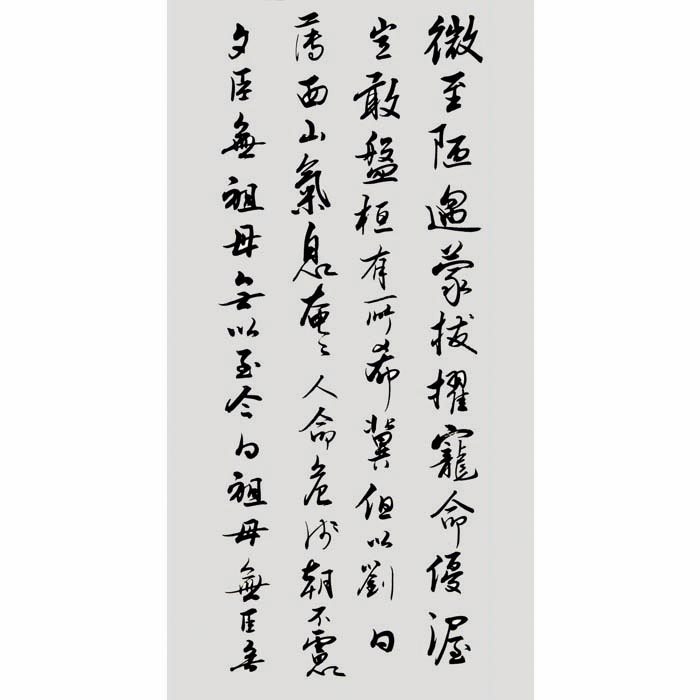 微至陋過蒙拔擢寵命優渥
豈敢盤桓有所希冀但以劉日
薄西山氣息奄々人命危淺朝不慮
夕臣無祖母無以至今日祖母無臣無